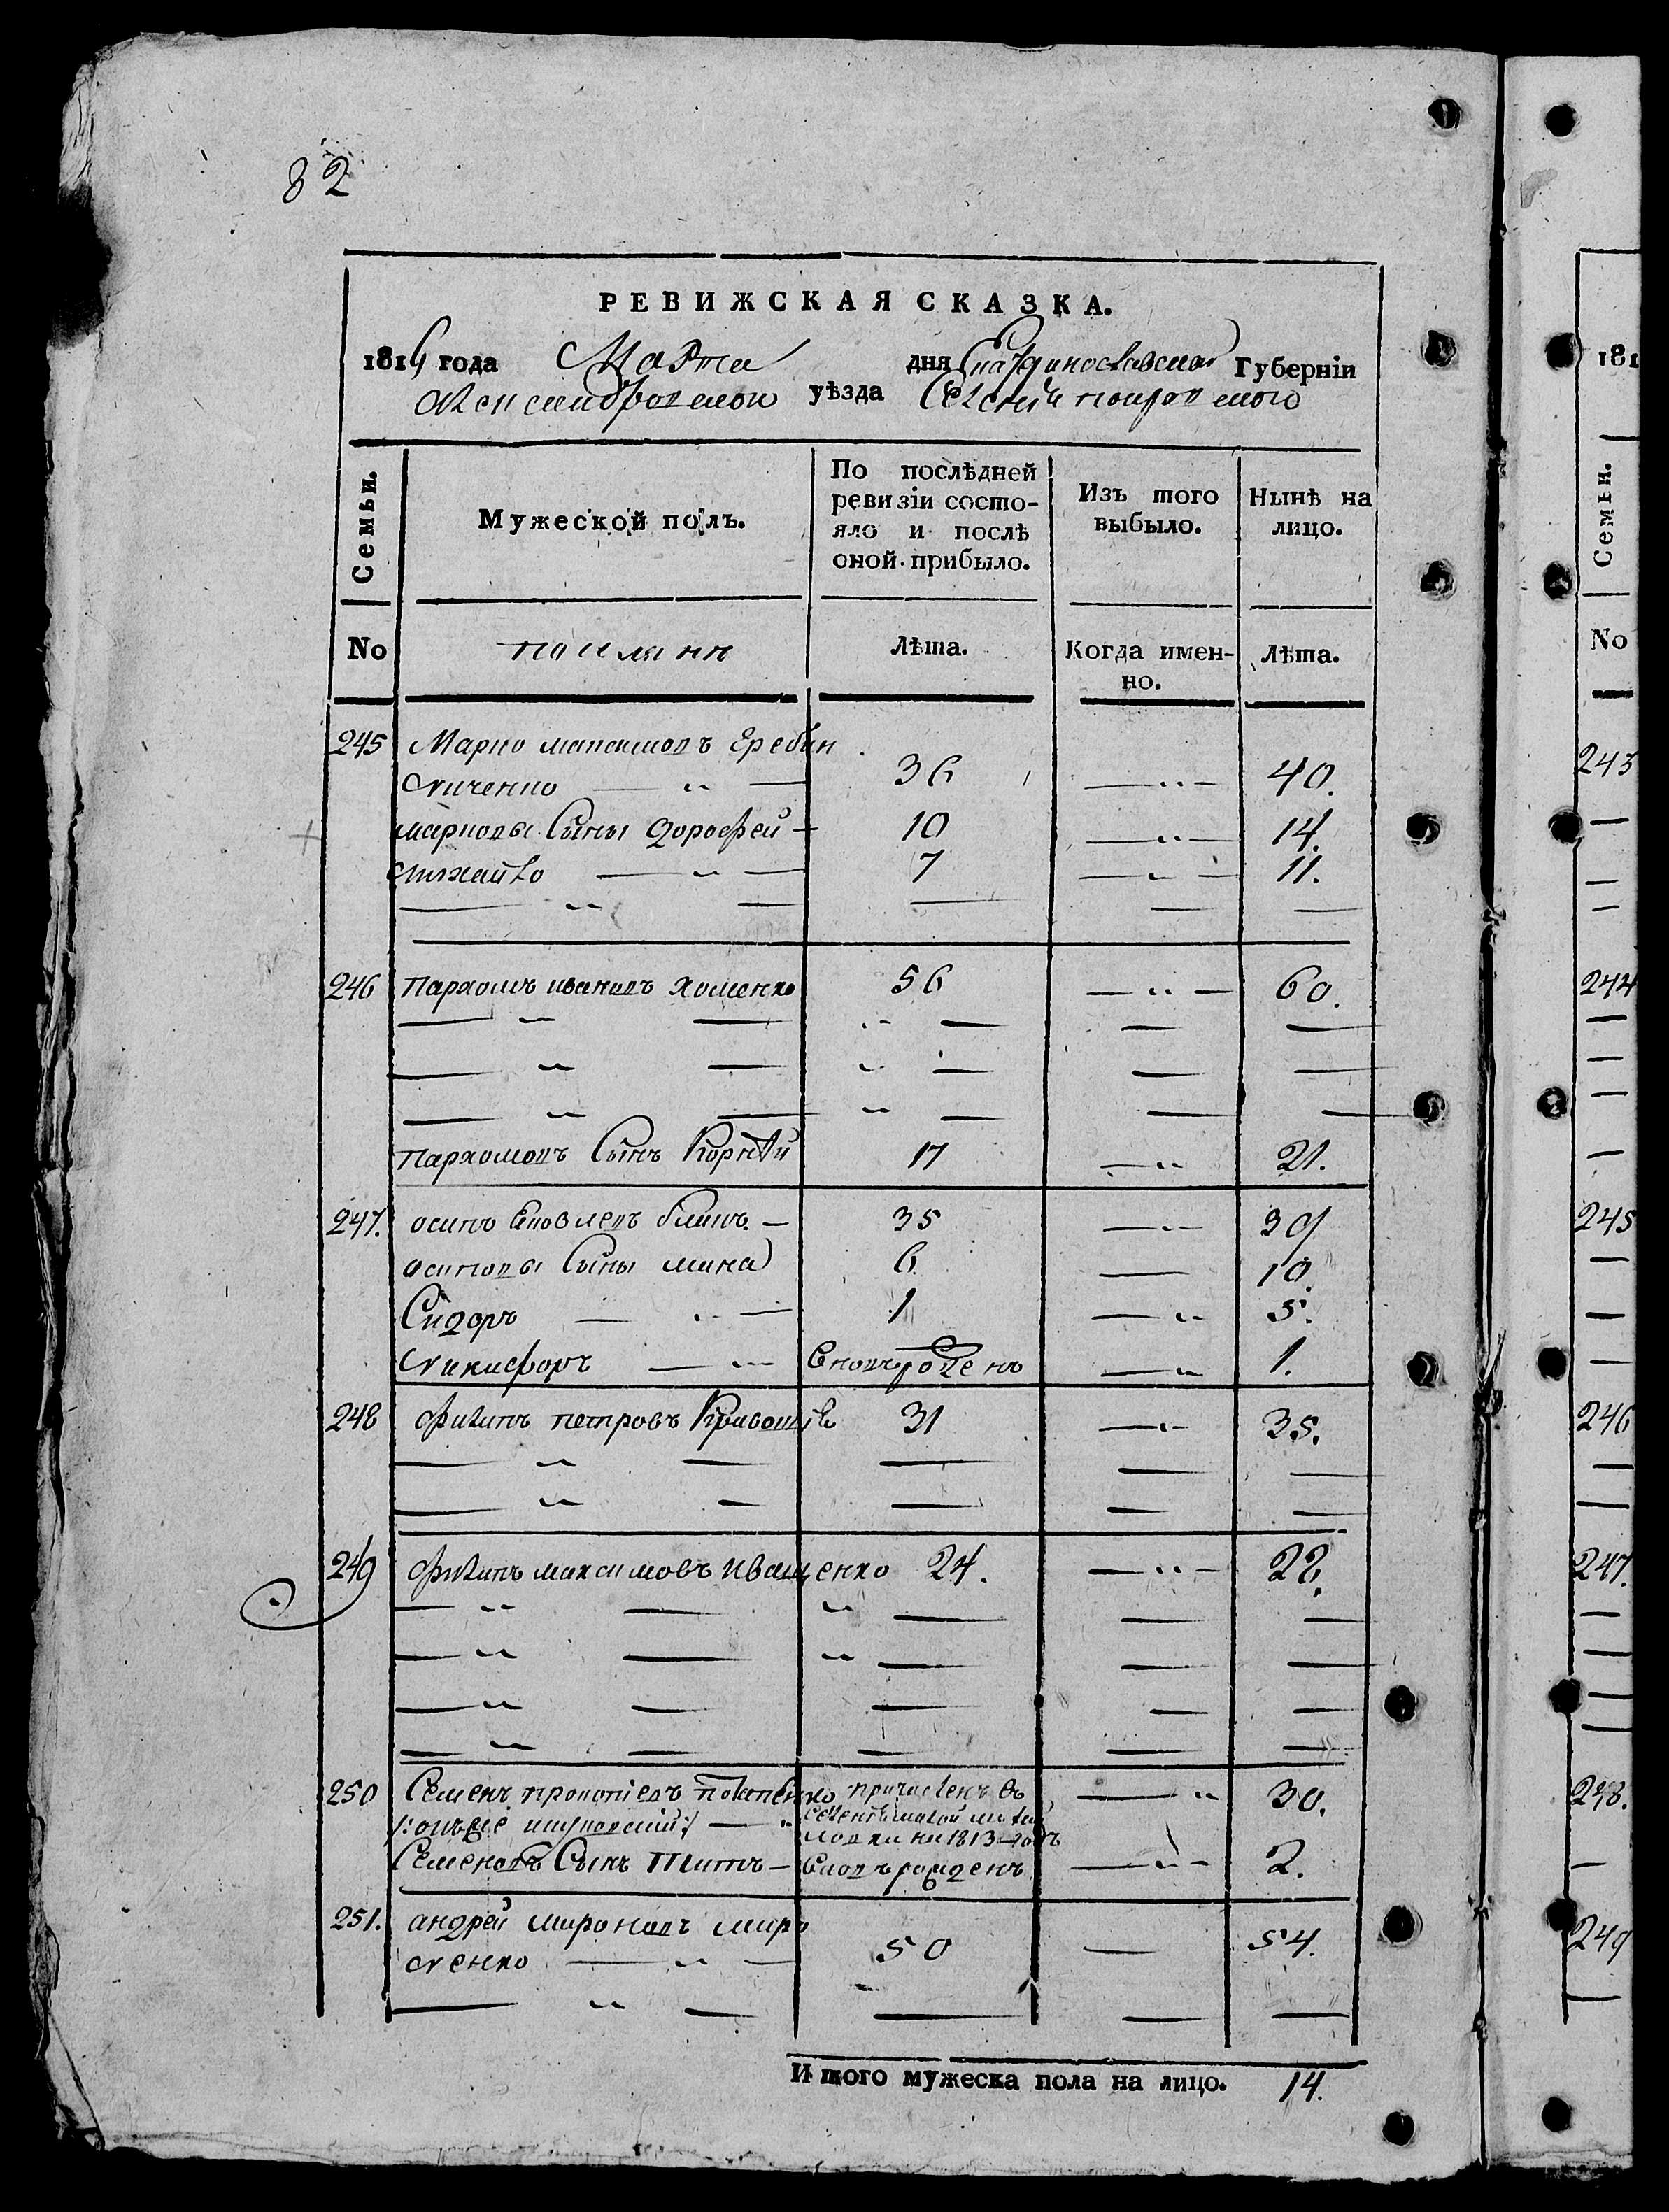 82
РЕВИЖСКАЯ СКАЗКА.
1816 года Марта дня Екатеринославской Губерніи
Александровскои уѣзда Селения покровского
Семьи.
Мужеской полъ.
По послѣдней ревизіи состо-
яло и послѣ оной прибыло.
Изъ того выбыло.
Нынѣ на лицо.
No
Лѣта.
Когда имен-
но.
Лѣта.
245 Марко максимовъ Гребин
ниченко 36 40.
марковы Сыны дорофей 10 14.
михайло 7 11.
246 пархомъ ивановъ хоменко 56 60.
пархомовъ Сынъ Корнѣй 17 21.
247. осипъ яковлевъ 35 39
осиповы Сыны мина 6 10.
Сидоръ 1 5.
никифоръ вновърожденъ 1.
248 филипъ петровъ 31 35.
249 филипъ максимовъ иващенко 24. 28.
250 Семенъ прокопіевъ потапенко причисленъ въ 30.
на 1813 годъ
Семеновъ Сынъ Титъ вновърожденъ 2.
251. андрей мироновъ миро
ненко 50 54.
Итого мужеска пола на лицо. 14.
181
Семьи.
No
243
244
245
246
247.
248.
249